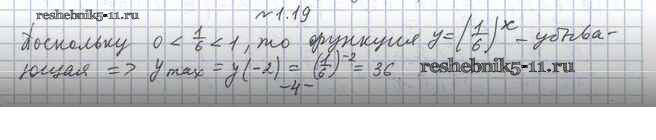 №1.19
reshebnik5-11.ru
Поскольку 0 < 1/6 < 1, то функция y = (1/6)^x – убыва-
ющая => y max = y(-2) = (1/6)^-2 = 36 reshebnik5-11.ru
-4-